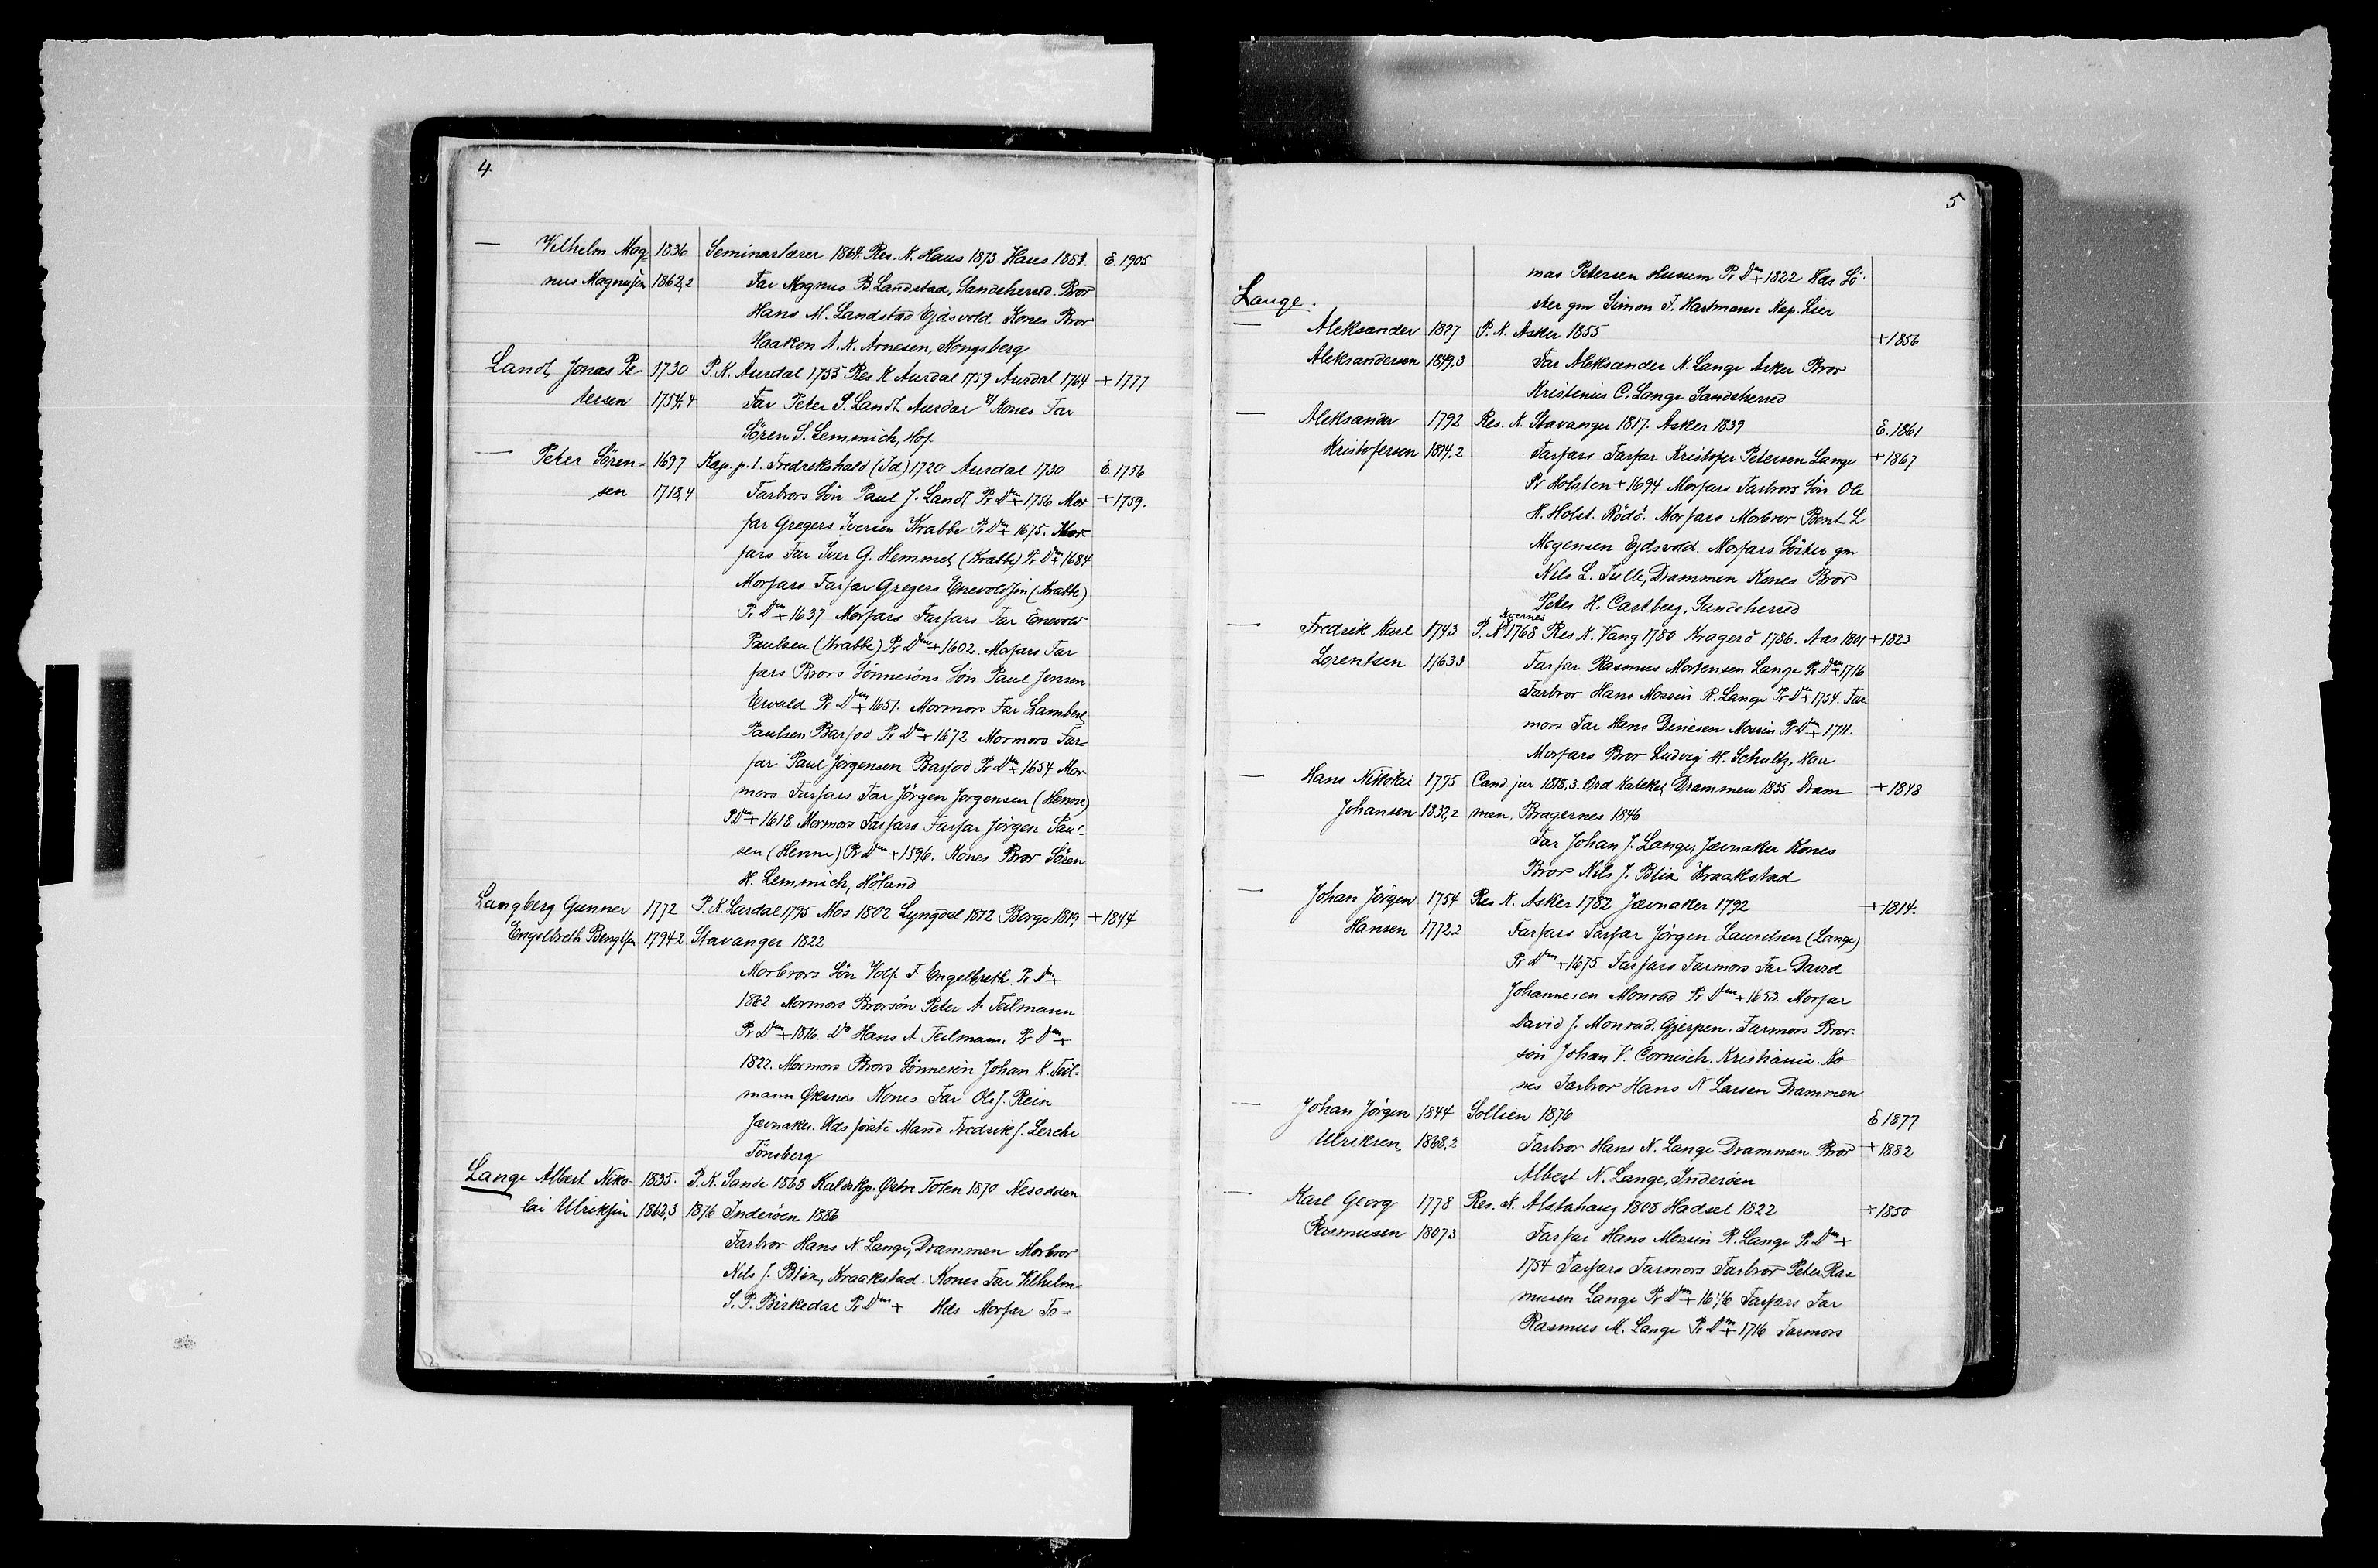 4
— Vilhelm Mag- 1836 Seminarlærer 1864. Res. K. Haus 1873. Haus 1881. E. 1905
nus Magnussen 1862,2 Far Magnus B. Landstad, Sandeherred. Bror
Hans M. Landstad Ejdsvold Kones Bror
Haakon A. K. Arnesen, Kongsberg
Landt, Jonas Pe- 1730 P. K. Aurdal 1755 Res K Aurdal 1759 Aurdal 1764 + 1777
tersen 1754,4 Far Peter S. Landt Aurdal Kones Far
Sören S. Lemmich, Hof
— Peter Sören- 1697 Kap. p. l. Fredrikshald (Id) 1720 Aurdal 1730 E. 1756
sen 1718,4 Farbrors Sön Paul J. Landt Pr Dm + 1756 Mor + 1759.
far Gregers Iversen Krabbe Pr Dm + 1675. Mor
fars Far Iver G. Hemmet (Krabbe) Pr Dm + 1684
Morfars Farfar Gregers Enevoldsen (Krabbe)
Pr Dm + 1637 Morfars Farfars Far Enevold
Paulsen (Krabbe) Pr Dm + 1602. Mofars Far
fars Brors Sönnesöns Sön Paul Jensen
Ewald Pr Dm + 1651. Mormors Far Lambert
Paulsen Barfod Pr Dm + 1672 Mormors Far-
far Paul Jörgensen Barfod Pr Dm + 1654 Mor
mors Farfars Far Jörgen Jorgensen (Henne)
P Dm + 1618 Mormors Farfars Farfar Jörgen Paul-
sen (Henne) Pr Dm + 1596. Kones Bror Sören
H. Lemmich, Höland
Langberg Gunner 1772 P. K. Lardal 1795 Mos 1802 Lyngdal 1812 Borge 1819 + 1844
Engelbreth Bengtsen 1794 2 Stavanger 1822
Morbrors Sön Volf F Engelbreth Pr Dm +
1862. Mormors Brorsön Peter A Teilmann
Pr Dm + 1816. Do Hans A Teilmann. Pr Dm +
1822. Mormors Brors Sönnesön Johan K. Teil-
mann Øksnes. Kones Far Ole J. Rein
Jævnaker. Hds förste Mand Fredrik J. Lerche
Tönsberg
Lange Albert Niko- 1835. P. K. Sande 1868 Kaldskp. Østre Toten 1870 Nesodden
lai Ulriksen 1863,3 1876 Inderöen 1886
Farbror Hans N. Lange, Drammen Morbror
Nils J. Blix, Kraakstad. Kones Far Vilhelm
S. P. Birkedal Pr Dm + Hds Morfar To-
5
mas Petersen Husum Pr Dm + 1822 Hds Sö-
Lange.
ster gm Simon F. Hartmann Kap. Lier
— Aleksander 1827 P. K. Asker 1855 + 1856
Aleksandersen 1849,3 Far Aleksander K. Lange Asker Bror
Kristenius C. Lange Sandeherred
— Aleksander 1792 Res. K. Stavanger 1817. Asker 1839 E. 1861
Kristofersen 1814.2 Farfars Farfar Kristofer Petersen Lange + 1867
Pr Holsten + 1694 Morfars Farbrors Sön Ole
H. Holst. Rödö. Morfars Morbror Bent L
Mogensen Ejdsvold. Morfars Söster gm
Nils L. Tulle, Drammen Kones Bror
Peter H. Castberg, Sandeherred
Kvernes
— Fredrik Karl 1743 P. K 1768 Res K. Vang 1780 Kragerö 1786. Aas 1801 + 1823
Lorentsen 1763.3 Farfar Rasmus Mortensen Lange Pr Dm + 1716
Farbror Hans Mossin R. Lange Pr Dm + 1754. Far
mors Far Hans Dinesen Mossin Pr Dm + 1711.
Morfars Bror Ludvig H. Schultz, Naa
— Hans Nikolai 1795 Cand. jur 1818,3. Ord Kateket, Drammen 1835 Dram + 1848
Johansen 1832,2 men, Bragernes 1846
Far Johan J. Lange, Jævnaker Kones
Bror Nils J. Blix Kraakstad
— Johan Jörgen 1754 Res K. Asker 1782 Jævnaker 1792 + 1814.
Hansen 1772.2 Farfars Farfar Jörgen Lauritsen (Lange)
Pr Dm + 1675 Farfars Farmors Far David
Johannesen Monrad Pr Dm + 1653. Morfar
David J. Monrad, Gjerpen. Farmors Bror-
sön Johan V. Cornisch. Kristiania. Ko-
nes Farbror Hans N Larsen Drammen
— Johan Jörgen 1844 Sollien 1876 E 1877
Ulriksen 1868,2 Farbror Hans N. Lange Drammen. Bror + 1882
Albert N. Lange, Inderöen
— Karl Georg 1778 Res. K. Alstahaug 1808 Hadsel 1822 + 1850
Rasmusen 1807.3 Farfar Hans Mossin R. Lange Pr Dm +
1754 Farfars Farmors Farbror Peter Ras
musen Lange Pr Dm + 1676 Farfars Far
Rasmus M. Lange Pr Dm + 1716 Farmors